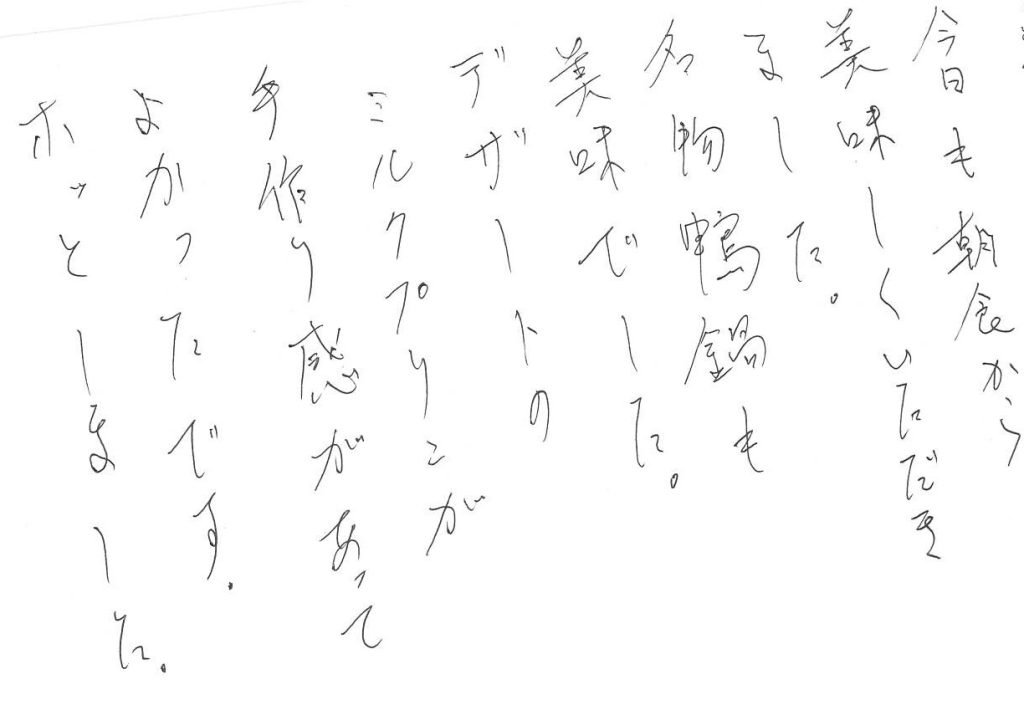 今日も朝食から
美味しくいただき
ました。
名物鴨鍋も
美味でした。
デザートの
ミルクプリンが
手作り感があって
よかったです.
ホッとしました.